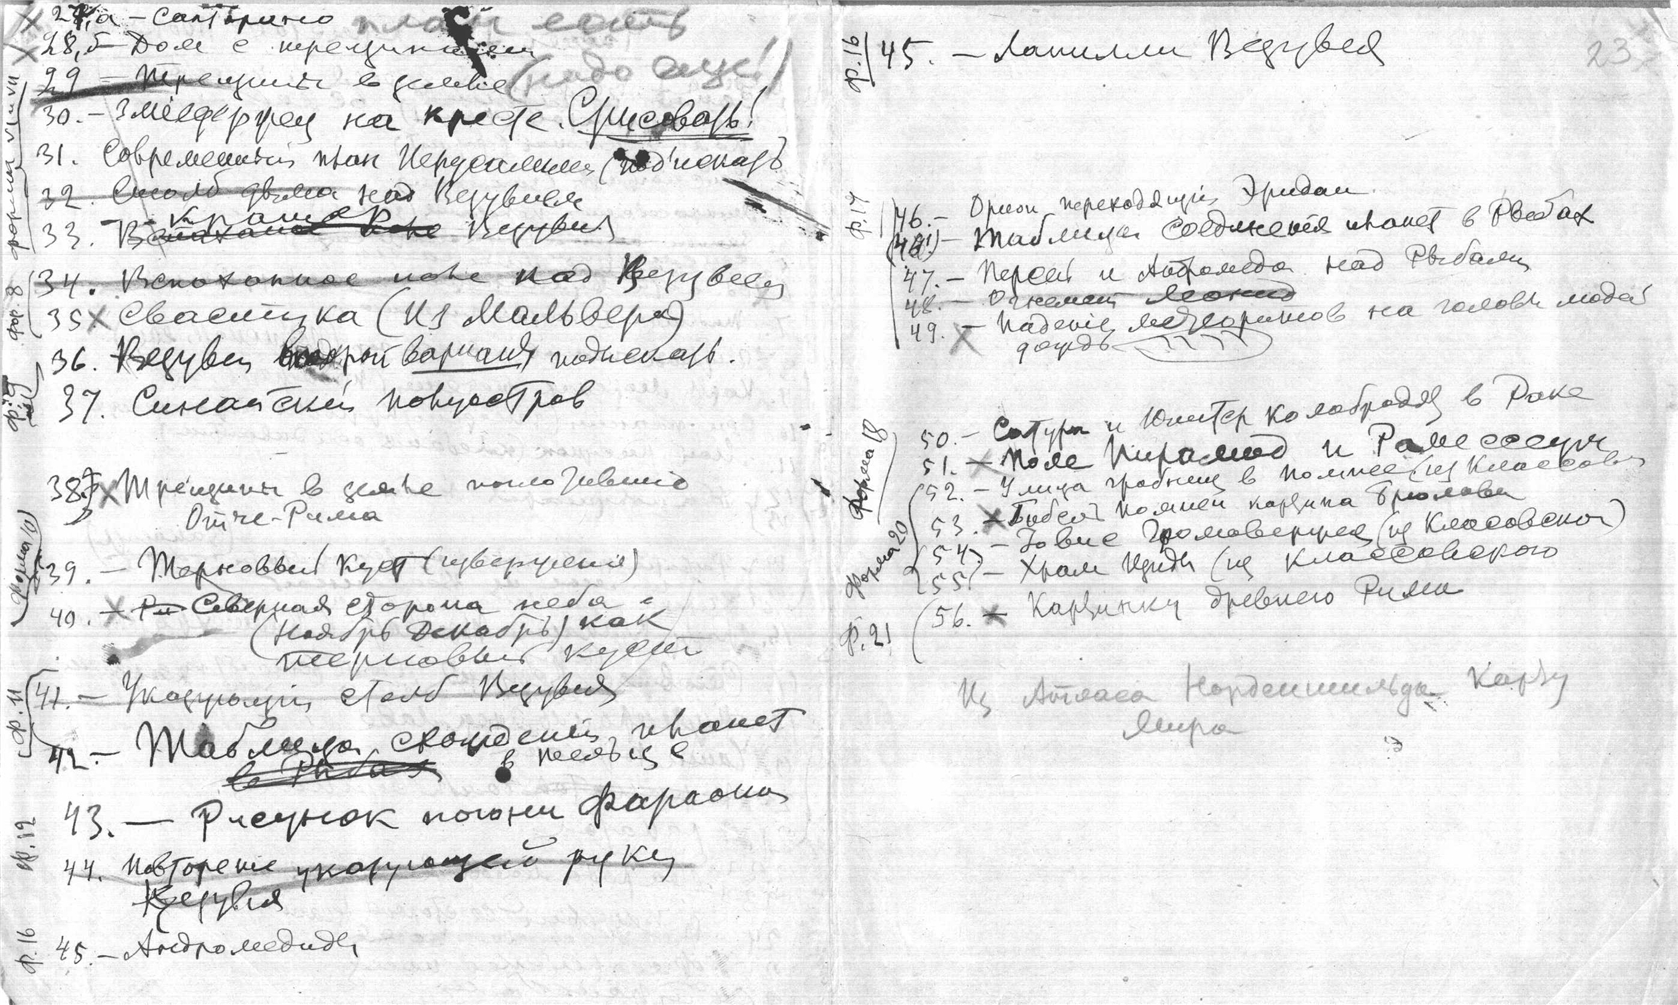 28,а – Санторино план есть
28,б – Дом с трещинами
29 – Трещины в земле (надо еще!)
30. – Змеедержец на кресте. Срисовать!
31. Современный план Иерусалима (подыскать
32. Столб дыма над Везувием
33. Кратер Везувия
34. Вспаханное поле над Везувием
35 × Свастика (Из Мальвера)
36. Везувий второй вариант подыскать.
37. Синайский полуостров
38 × Трещины в земле поглотившие
Отче-Рима
39. – Терновый куст (извержение)
40. × Северная сторона неба
(Ноябрь Декабрь) как
терновый куст
41. – Указующий столб Везувия
42. – Таблица схождений планет
в Рыбах в месяце
43. – Рисунок погони фараона
44. Повторение указующей руки
Везувия
45. – Андромедиды
фор. 8
форма 10
ф. 11
ф. 12
ф. 16
ф. 16
45. – Лапилли Везувия
23
ф. 17
46. – Орион переходящий Эридан
– Таблица соединения планет в Рыбах
47. – Персей и Андромеда над Рыбами
48. – Огнемет Леонид
49. × – Падение метеоритов на головы людей
дождь
форма 18
50. – Сатурн и Юпитер колобродят в Раке
51. – × Поле Пирамид и Рамессеум
форма 20
52. – Улица гробниц в Помпее (из Классовск
53. – × Гибель Помпеи картина Брюлова
54. – Зевс Громовержец (из Классовского)
55. – Храм Изиды (из Классовского
ф. 21
56. × Картинку древнего Рима
Из Атласа Норденшильда Карту
Мира